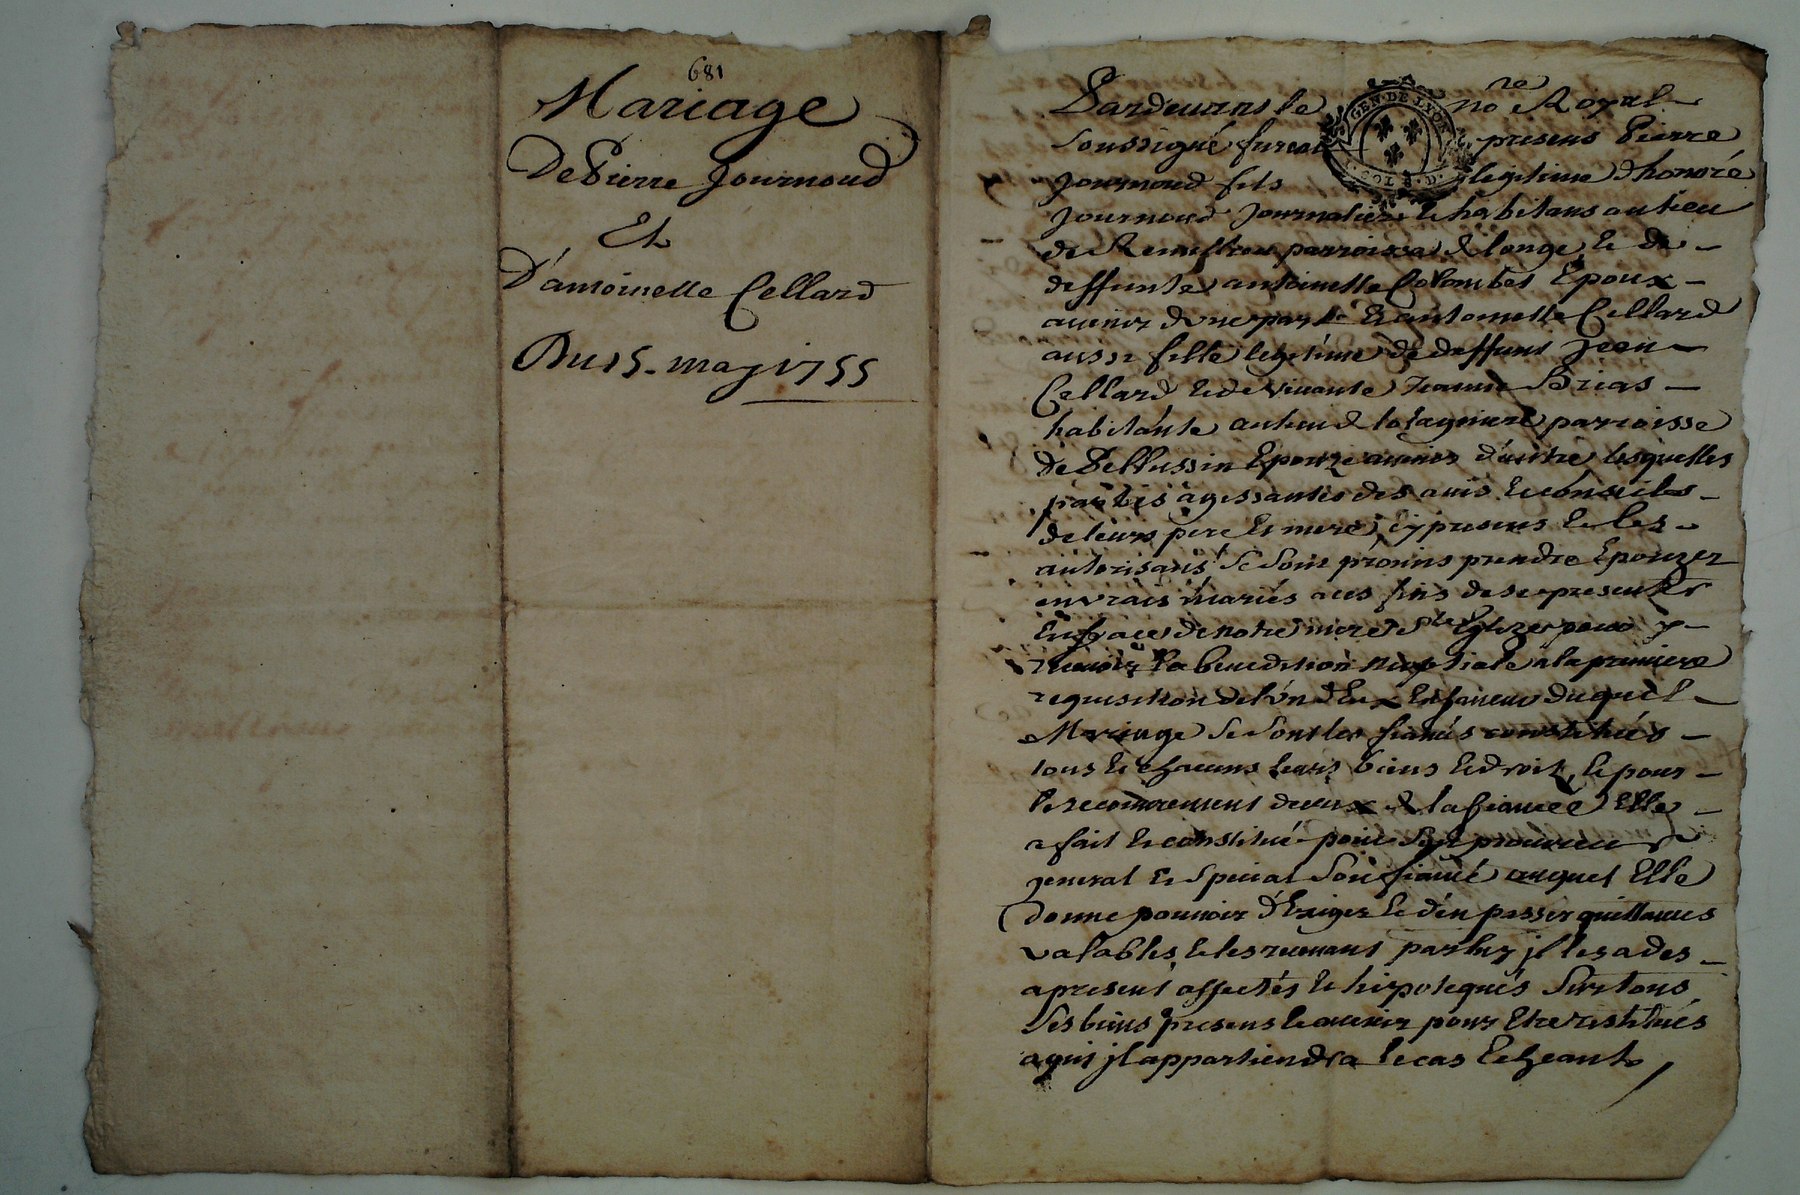 681
Mariage
De Pierre Journoud
Et
D'antoinette Cellard
Du 15. may 1755
GEN. DE LYON
Pardevant le no.re Royal
soussigné furent presens Pierre
Journoud fils legitime d'honoré
Journoud Journalier et habitans au lieu
de parroisse de longe, et de
deffunte antoinette Colombet Epoux
avenir d'une part Et antoinette Cellard
aussi fille legitime de deffunt Jean
Cellard et de vivante Jeanne Brias
habitante au lieu de parroisse
de Pellussin Epouze avenir d'autre lesquelles
parties agissantes des avis et conseils
de leurs pere et mere, cy presens et les
autorisans se sont promis prendre Epouzer
en vrais mariés aux fins de se presenter
En face de notre mere S.te Eglize pour y
recevoir la benediction nuptiale a la premiere
requisition de l'un d'Eux En faveur duquel
Mariage se sont les fiancés constitués
tous et chacuns leurs biens et droit, et pour
le recouvrement deceux de la fiancée Elle
a fait et constitué pour son procureur
general et special son fiancé auquel Elle
donne pouvoir d'Exiger et d'en passer quittances
valables, et les recevant par luy jl les a des
apresent affectés et hipotequés sur tous
ses biens presens et avenir pour Etre restitués
a qui jl appartiendra le cas Echeant,